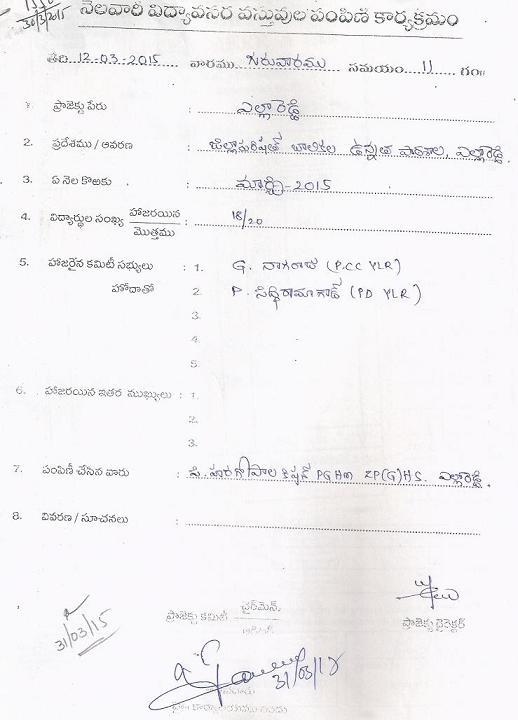 30/3/2015
నెలవారీ విద్యావసర వస్తువుల పంపిణి కార్యక్రమం
తేది 12-03-2015 వారము గురువారము సమయం 11 గం॥
1. ప్రాజెక్టు పేరు : ఎల్లారెడ్డి
2. ప్రదేశము / ఆవరణ : జిల్లాపరిషత్ బాలికల ఉన్నత పాఠశాల, ఎల్లారెడ్డి.
3. ఏ నెల కొఱకు : మార్చి-2015
4. విద్యార్థుల సంఖ్య హాజరయిన / మొత్తము : 18/20
5. హాజరైన కమిటీ సభ్యులు : 1. G. నాగరాజు (P.CC YLR)
హోదాతో 2. P. సిద్ధిరామాగౌడ్ (PD YLR)
3.
4.
5.
6. హాజరయిన ఇతర ముఖ్యులు : 1.
2.
3.
7. పంపిణీ చేసిన వారు : హరగోపాల కిషన్ PGHM ZP(G)HS. ఎల్లారెడ్డి.
8. వివరణ / సూచనలు :
31/03/15
ప్రాజెక్టు కమిటీ చైర్మెన్
ప్రాజెక్టు డైరెక్టర్
31/03/15